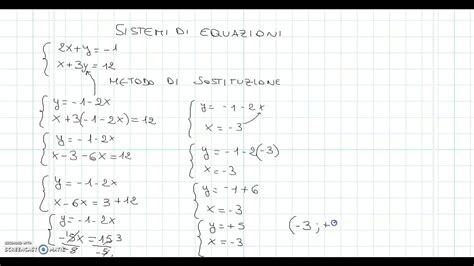 SISTEMI DI EQUAZIONI
{ 2x+y=-1
{ x+3y=12
METODO DI SOSTITUZIONE
{ y=-1-2x
{ x+3(-1-2x)=12
{ y=-1-2x
{ x-3-6x=12
{ y=-1-2x
{ x-6x=3+12
{ y=-1-2x
-5x=15 3
-5 -5
{ y=-1-2x
{ x=-3
{ y=-1-2(-3)
{ x=-3
{ y=-1+6
{ x=-3
{ y=+5
{ x=-3
(-3;+
SCREENCAST MATIC